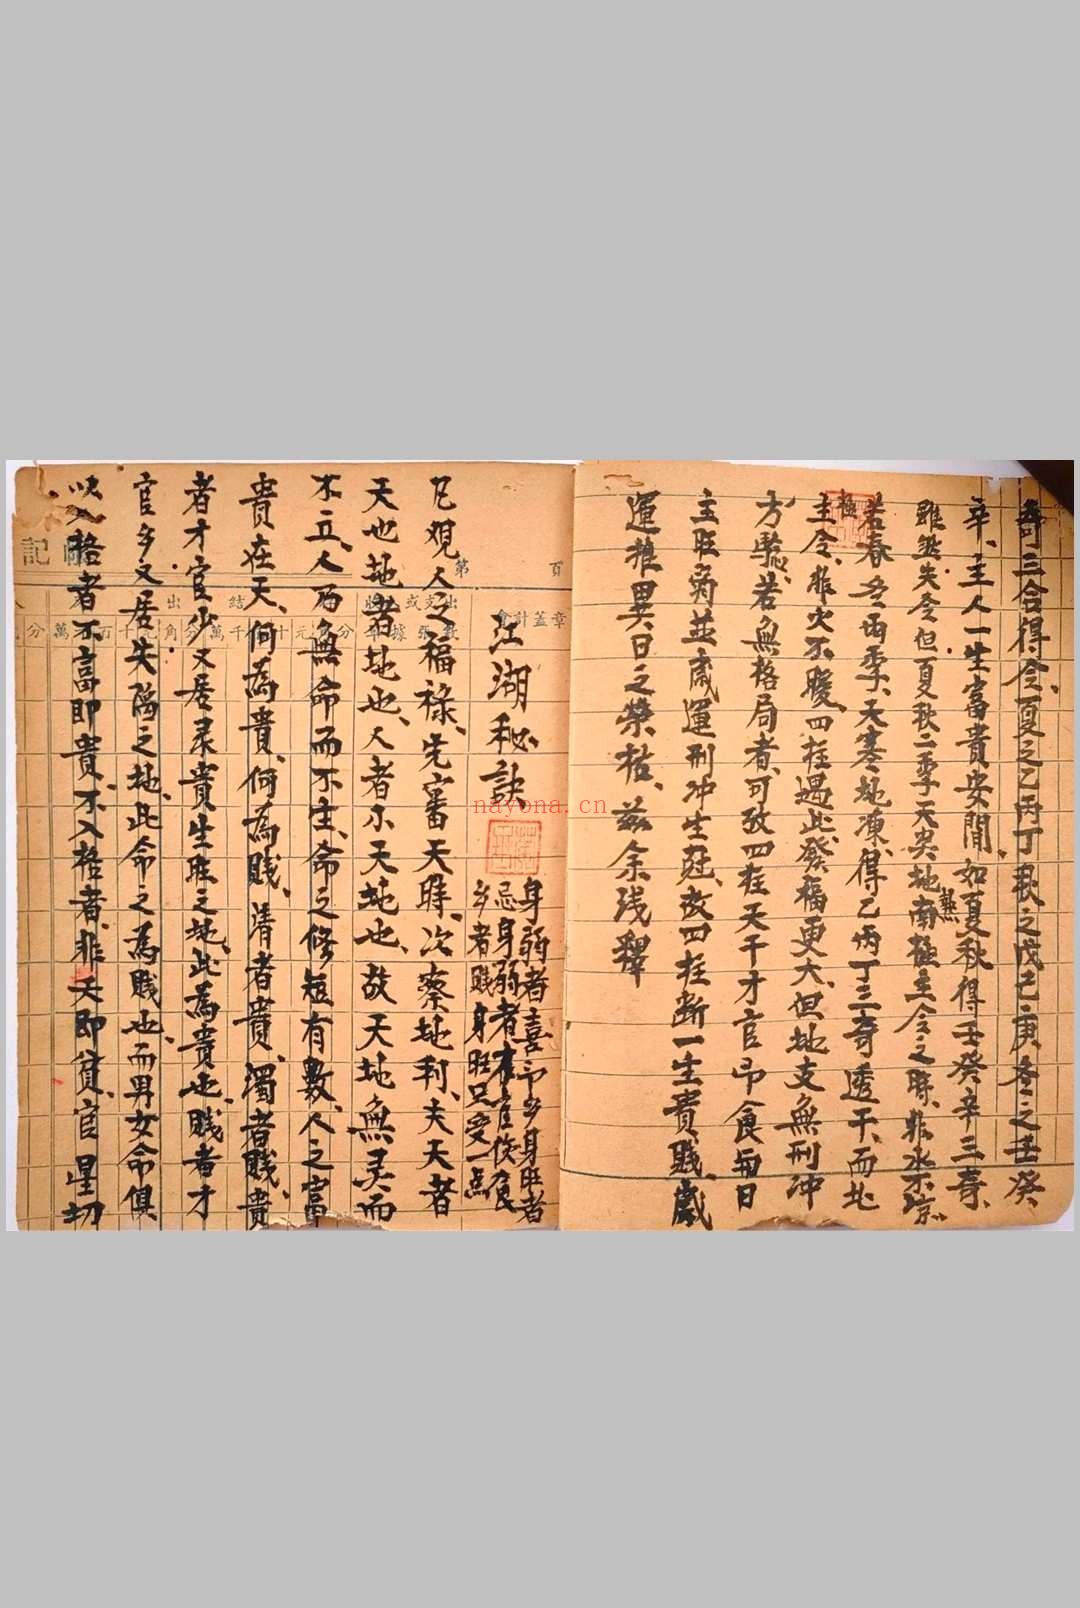 奇三合得令、夏之乙丙丁秋之戊己庚冬之壬癸
辛、主人一生富貴安閒、如夏秋得壬癸辛三奇、
雖然失令但夏秋二季天炎地熱南極主令之時、非水不凉
若春冬两季、天寒地凍、得乙丙丁三奇透干、而北極
主令、非火不暖、四柱遇此、發福更大、但地支無刑冲
方驗、若無格局者、可攷四柱天干才官印食与日
主旺弱並歲運刑冲生尅、故四柱断一生貴賤、歲
運推異日之榮枯、兹余浅釋
江湖秘訣
身弱者喜印乡身旺者
忌身弱者在官傍食
乡者賤身旺只受一点
凡观人之福禄、先審天時、次察地利、夫天者
天也地者地也、人者小天地也、故天地無灵而
不立、人而無命而不生、命之修短有數、人之富
貴在天、何為貴、何為賤、清者貴、濁者賤、貴
者才官少又居禄貴生旺之地、此為貴也、賤者才
官多又居失陷之地、此命之為賤也、而男女命俱
以入格者不富即貴、不入格者、非夭即貧、官星切
第 頁
會計蓋章
記
nayona.cn